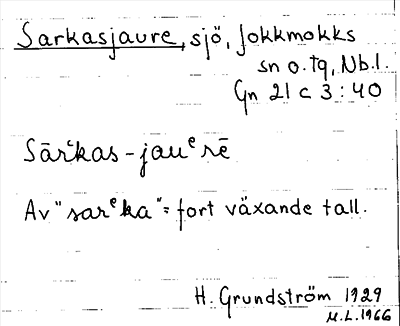 Sarkasjaure, sjö, Jokkmokks
sn o. tg, Nb.l.
Gn 21 c 3:40
Sārᵉkas-jauᵉrē
Av "sarᵉka" = fort växande tall.
H. Grundström 1929
M.L. 1966